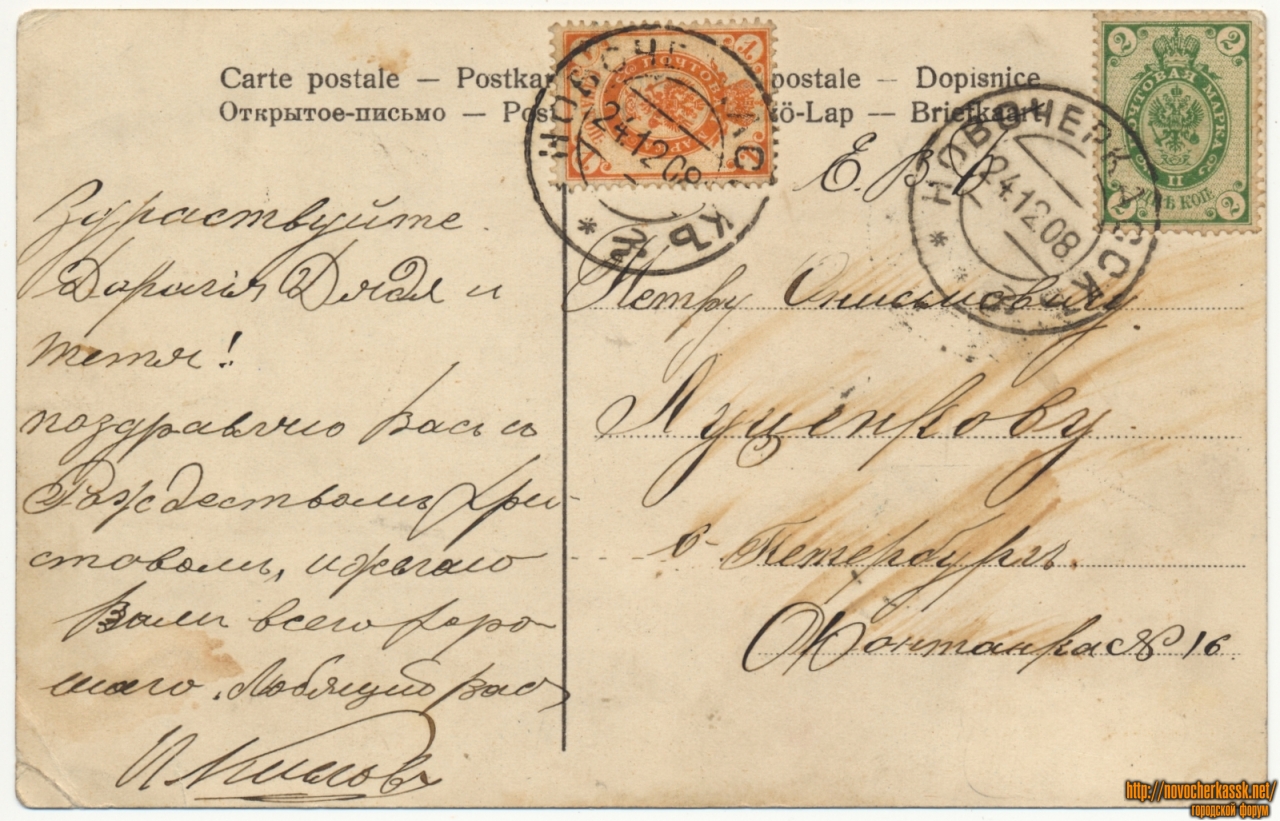 Carte postale — Postkar postale — Dopisnice
Открытое-письмо — Post ö-Lap — Briefkaart
НОВОЧЕРКАССКЪ
24.12.08
НОВОЧЕРКАССКЪ
24.12.08
ПОЧТОВАЯ МАРКА
1
2
ДВѢ КОП.
Е. В. Б.
Здраствуйте
Дорагія Дядя и
тетя!
поздравляю васъ съ
Рождествомъ Хри-
стовомъ, и желаю
Вамъ всего хоро
шаго. Любящій вас
Петру Онисимовичу
Луценкову
С-Петербургъ
Фонтанка № 16
http://novocherkassk.net/
городской форум